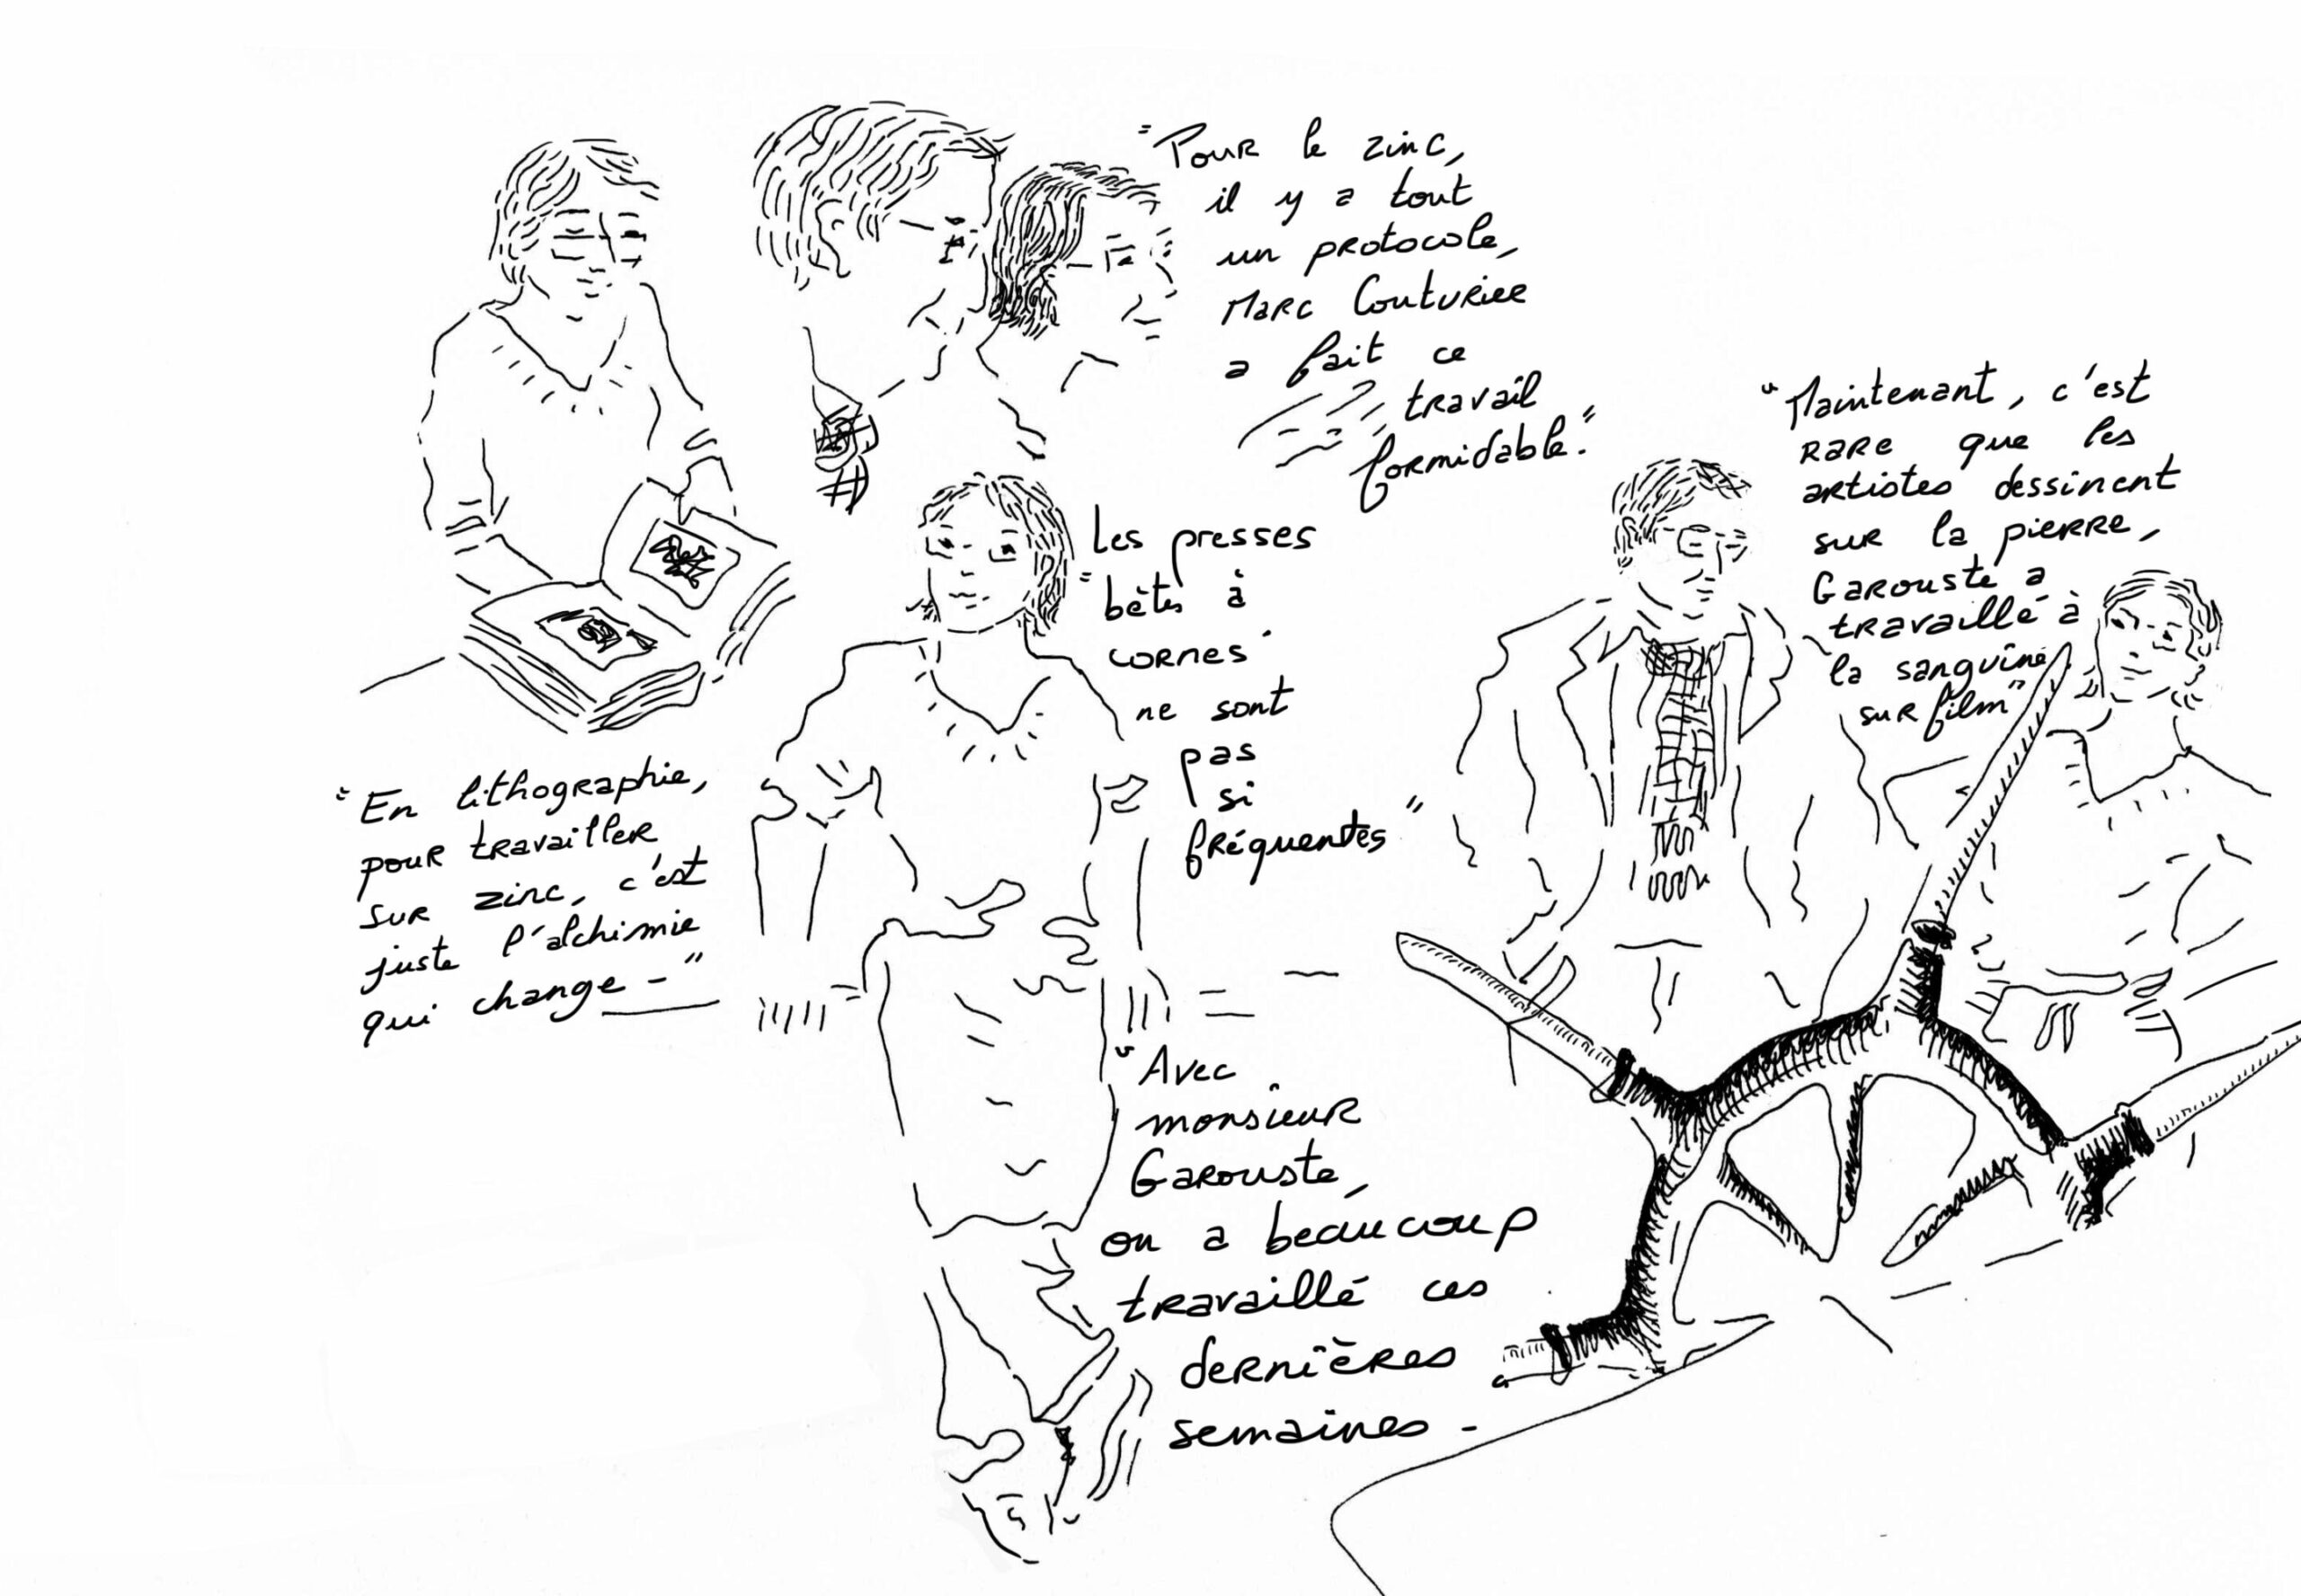 "Pour le zinc,
il y a tout
un protocole,
Marc Couturier
a fait ce
travail
formidable."
"Maintenant, c'est
rare que les
artistes dessinent
sur la pierre,
Garouste a
travaillé à
la sanguine
sur film"
Les presses
"bêtes à
cornes"
ne sont
pas
si
fréquentes"
"En lithographie,
pour travailler
sur zinc, c'est
juste l'alchimie
qui change-"
"Avec
monsieur
Garouste,
on a beaucoup
travaillé ces
dernières
semaines-